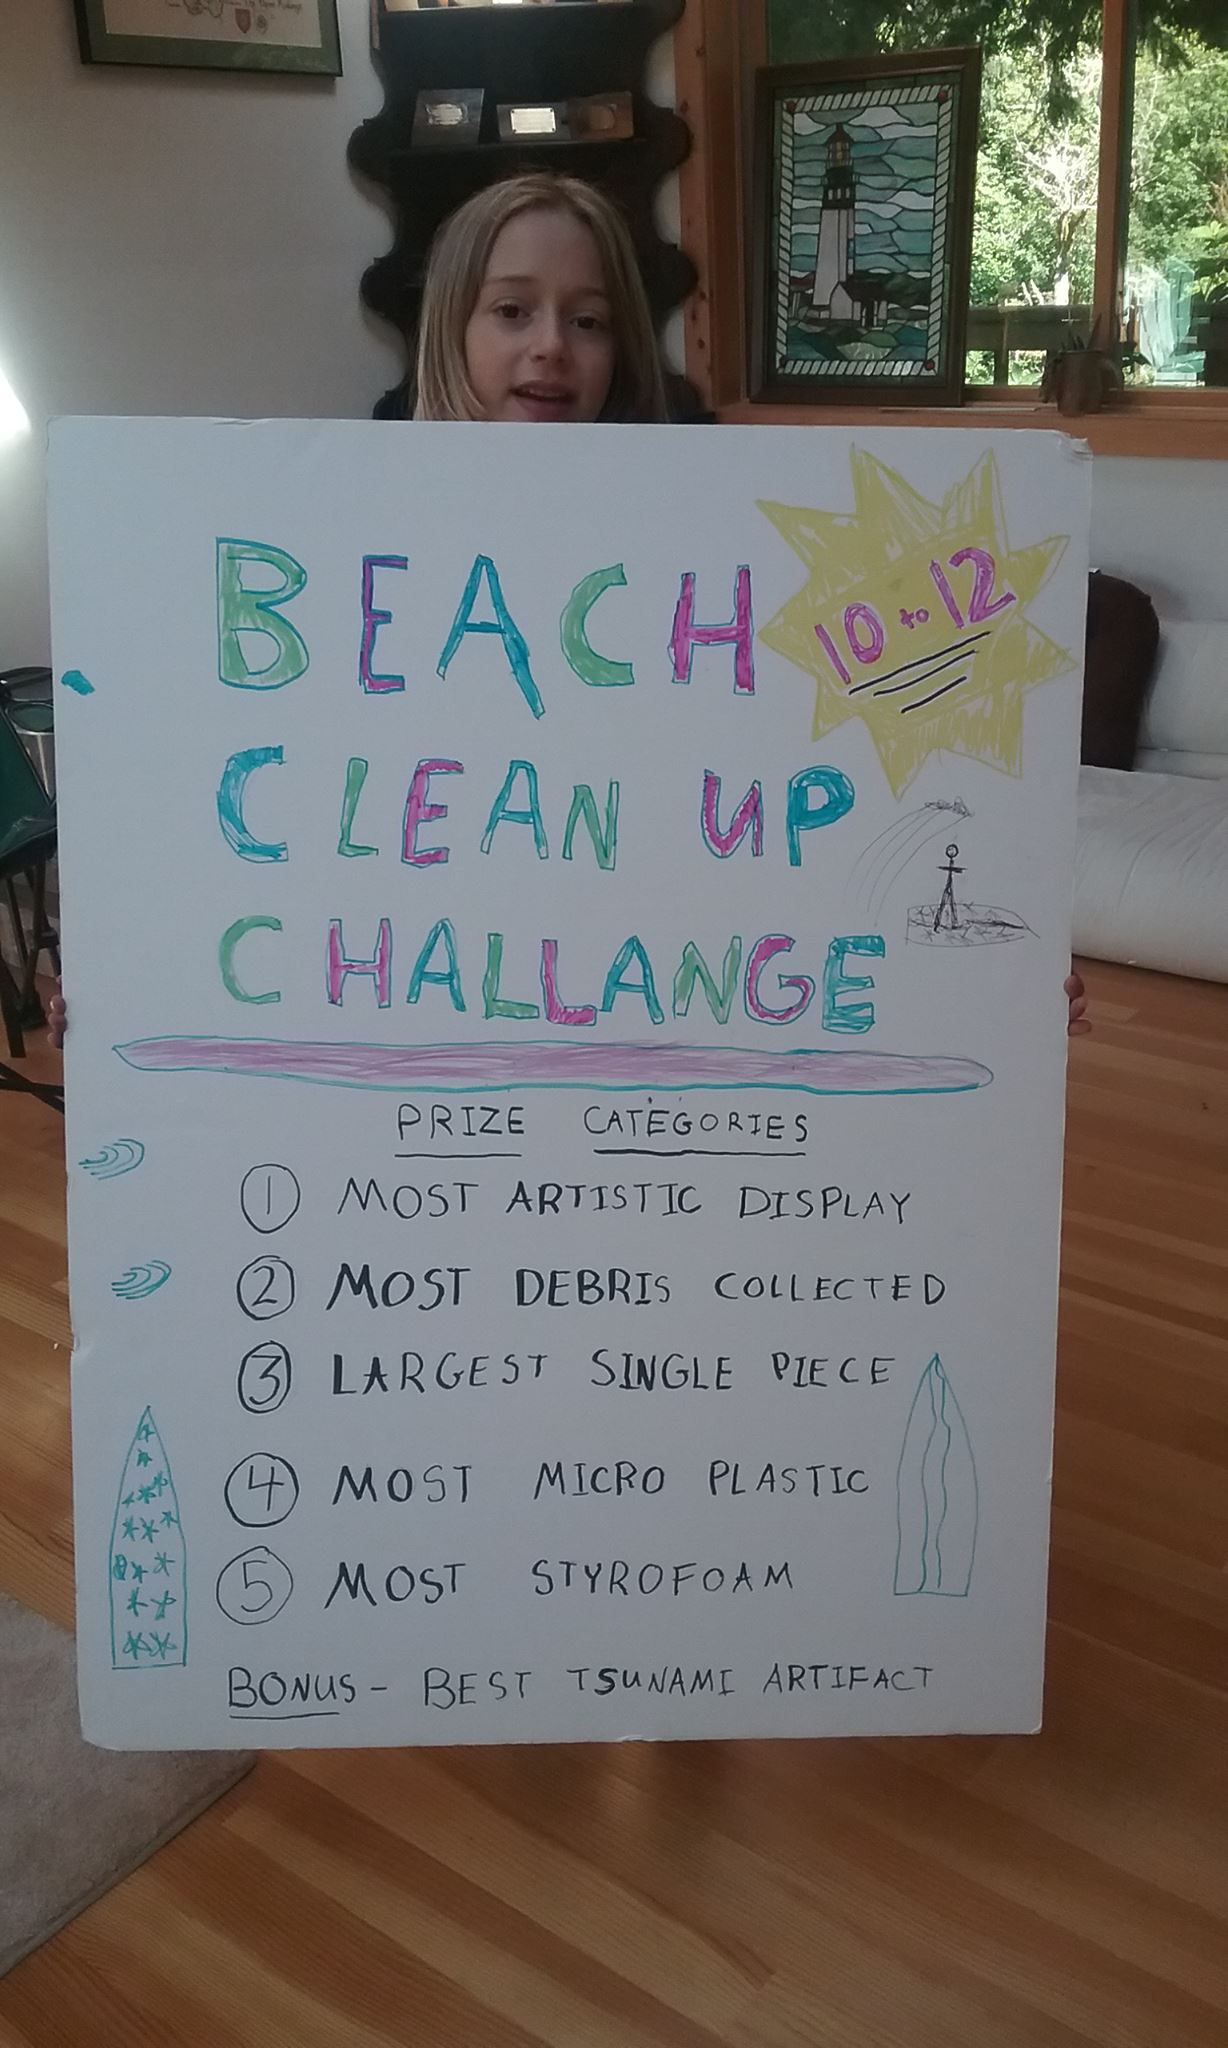 BEACH
10 to 12
CLEAN UP
CHALLANGE
PRIZE CATEGORIES
1 MOST ARTISTIC DISPLAY
2 MOST DEBRIS COLLECTED
3 LARGEST SINGLE PIECE
4 MOST MICRO PLASTIC
5 MOST STYROFOAM
BONUS - BEST TSUNAMI ARTIFACT